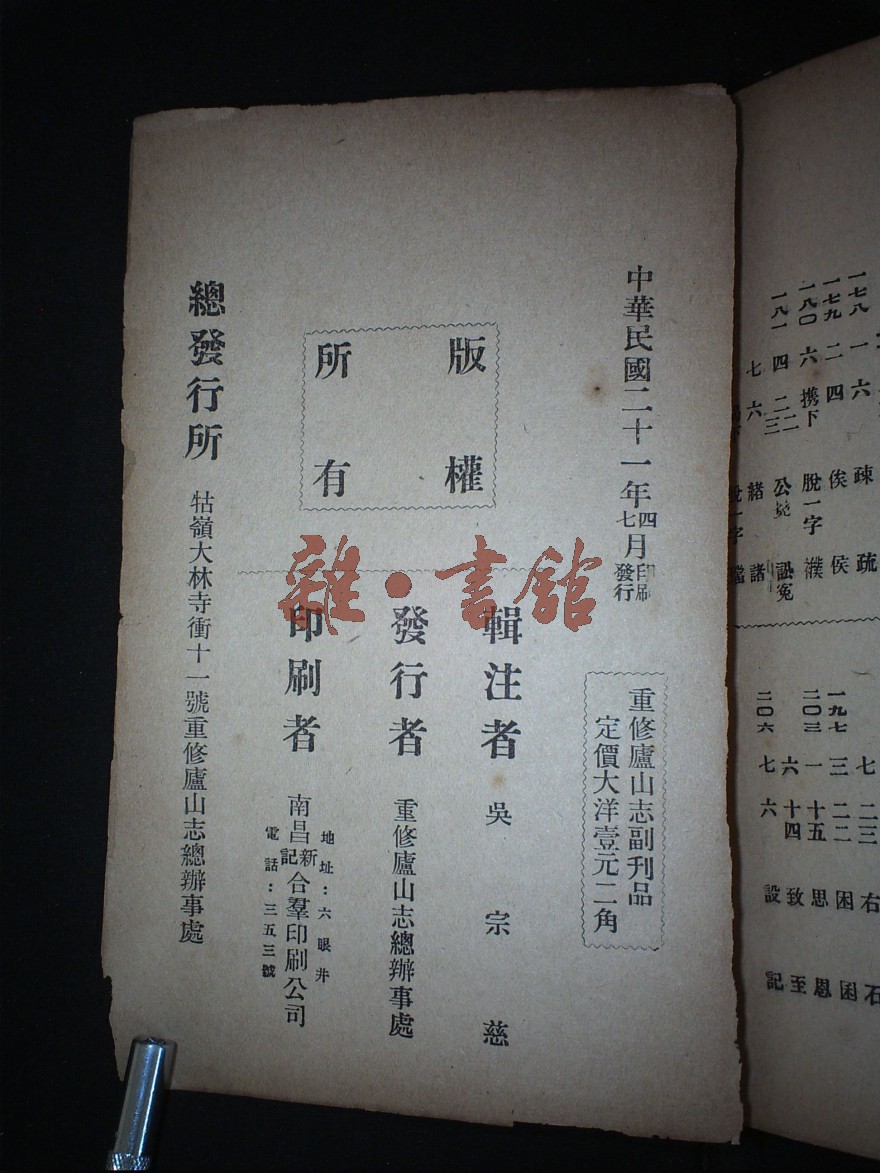 中華民國二十一年四月印刷
七月發行
重修廬山志副刊品
定價大洋壹元二角
版權
所有
輯注者 吳宗慈
發行者 重修廬山志總辦事處
印刷者 南昌新記合羣印刷公司
地址：六眼井
電話：三五三號
總發行所 牯嶺大林寺衝十一號重修廬山志總辦事處
雜·書館
一七八 一 六 疎 疏
一七九 二 四 俟 侯
一八〇 六 携下 脫一字 襆
一八一 四 二二
七 六 緒 諸
七 二三 右 石
一九七 三 二二 困 困
二〇三 一 十五 思 恩
六 十四 致 至
二〇六 七 六 設 記